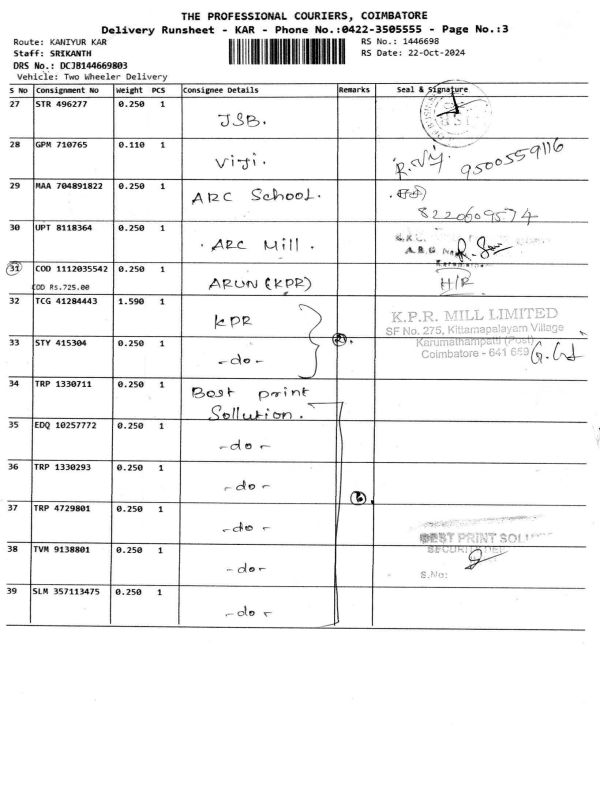 THE PROFESSIONAL COURIERS, COIMBATORE
Delivery Runsheet - KAR - Phone No.:0422-3505555 - Page No.:3
Route: KANIYUR KAR RS No.: 1446698
Staff: SRIKANTH RS Date: 22-Oct-2024
DRS No.: DCJB144669803
Vehicle: Two Wheeler Delivery
S No Consignment No Weight PCS Consignee Details Remarks Seal & Signature
27 STR 496277 0.250 1 JSB.
28 GPM 710765 0.110 1 Viji. R. Viji. 9500559116
29 MAA 704891822 0.250 1 ARC School.
8220609574
30 UPT 8118364 0.250 1 . ARC Mill .
31 COD 1112035542 0.250 1 ARUN (KPR) H/R
COD Rs.725.00
32 TCG 41284443 1.590 1 KPR
K.P.R. MILL LIMITED
SF No. 275, Kittamapalayam Village
33 STY 415304 0.250 1 -do- 2. Karumathampatti (Post)
Coimbatore - 641 659
34 TRP 1330711 0.250 1 Best print
Sollution.
35 EDQ 10257772 0.250 1 -do-
36 TRP 1330293 0.250 1 -do- 6.
37 TRP 4729801 0.250 1 -do-
BEST PRINT SOLU
38 TVM 9138801 0.250 1 -do-
S.No:
39 SLM 357113475 0.250 1 -do-